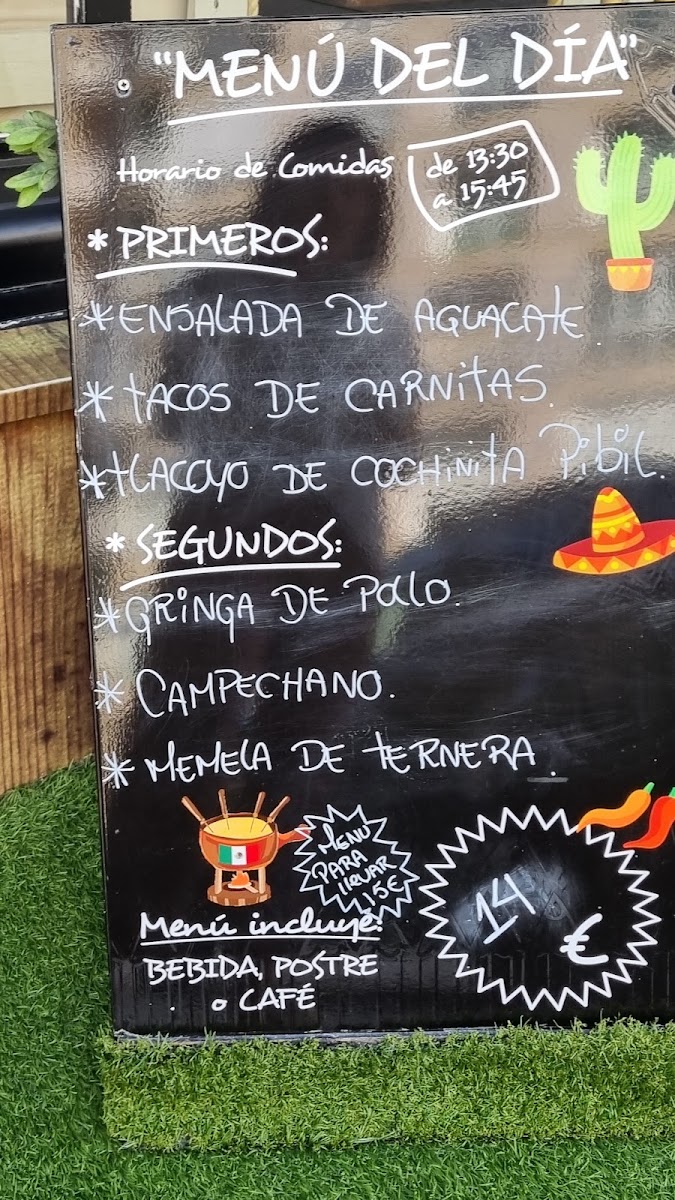 "MENÚ DEL DÍA"
Horario de Comidas
de 13:30
a 15:45
* PRIMEROS:
* ENSALADA DE AGUACATE.
* TACOS DE CARNITAS.
* TLACOYO DE COCHINITA PIBIL.
* SEGUNDOS:
* GRINGA DE POLLO.
* CAMPECHANO.
* MEMELA DE TERNERA.
MENU
PARA
llEVAR
15€
14
€
Menú incluye:
BEBIDA, POSTRE
o CAFÉ